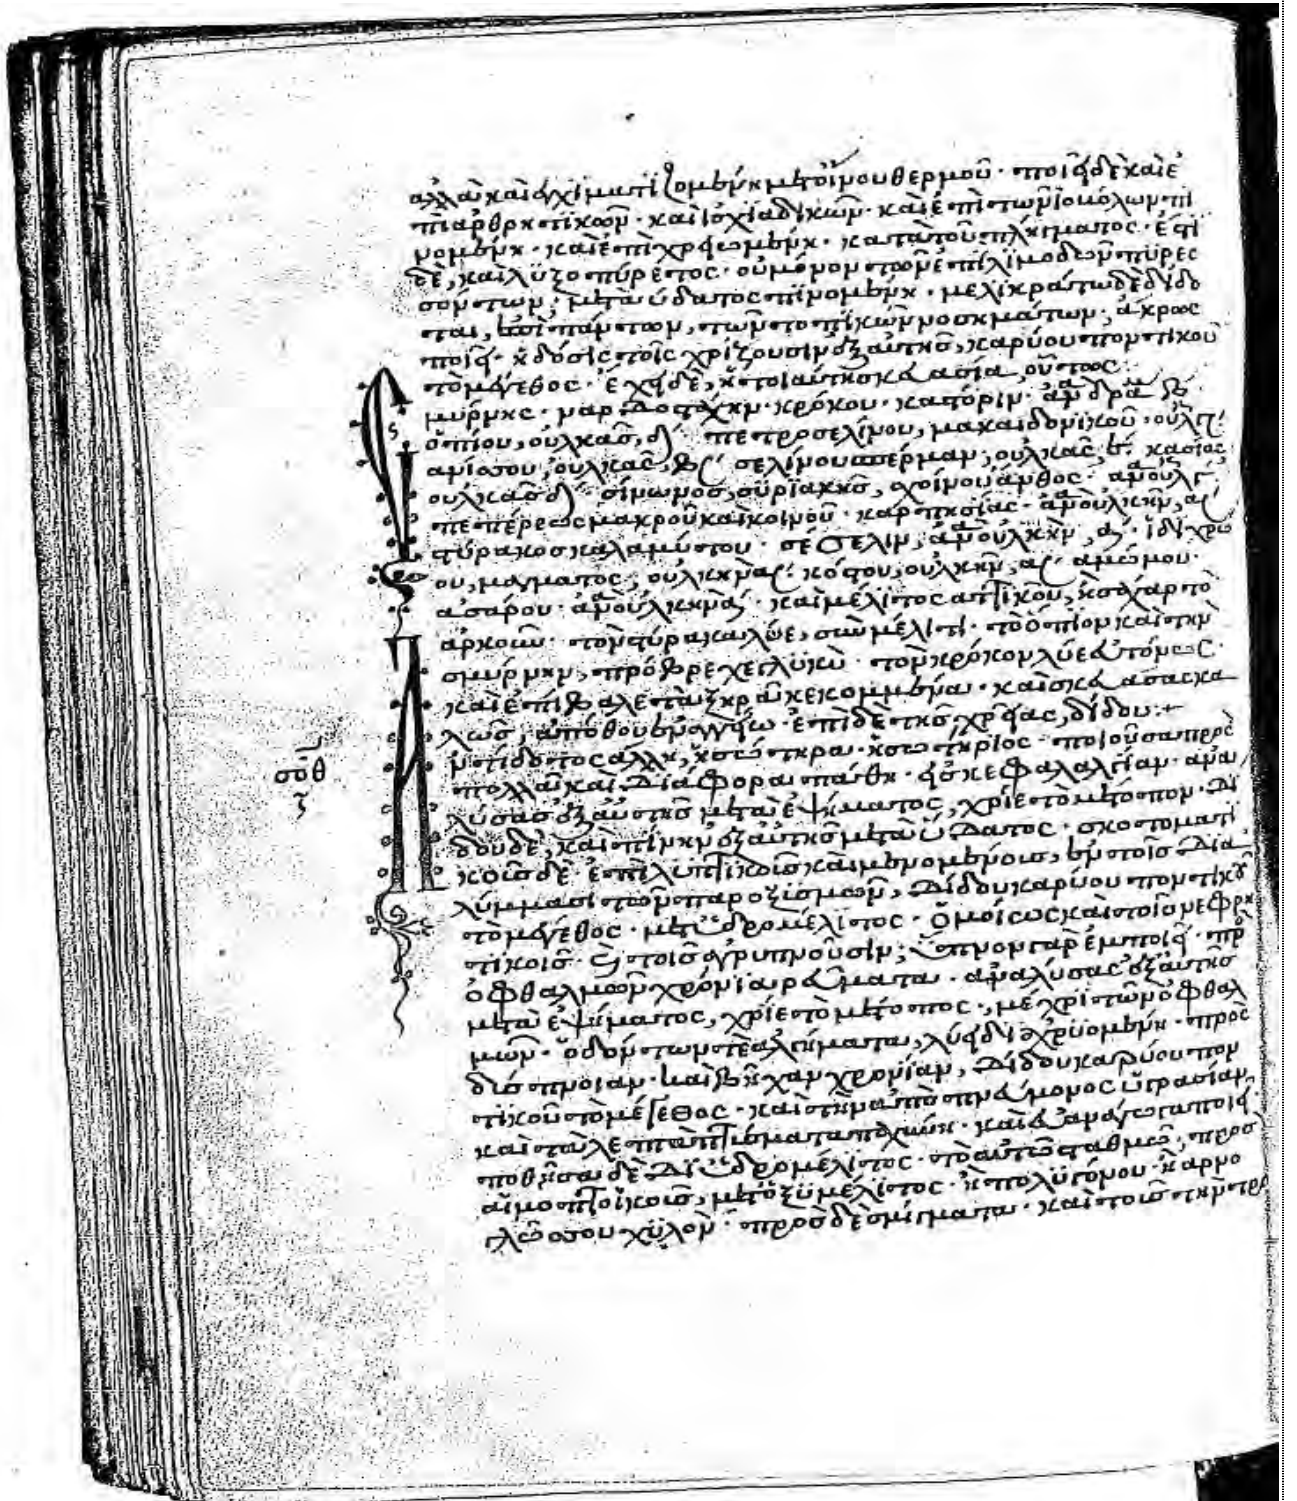 ἀλλὰ καὶ ἐγχυματιζομένη μετ οἴνου θερμοῦ · ποιεῖ δὲ καὶ ἐ
πὶ ἀρθρητικῶν · καὶ ἰσχιαδικῶν · καὶ ἐπὶ τῶν ἰοβόλων πι
νομένη · καὶ ἐπιχρηομένη · κατὰ τοῦ πλήγματος · ἔστι
δὲ, καὶ λυζοπύρετος · οὐ μόνον τῶν ἐπὶ λιμοδῶν πυρεσ
σόντων, μετὰ ὕδατος πινομένη · μελικράτω δὲ δίδο
ται, ἐπὶ πάντων, τῶν τοπικῶν νοσημάτων, ἄκρως
ποιεῖ · ἡ δόσις τοῖς χρίζουσιν ἐξ αὐτῆς, καρύου ποντικοῦ
τὸ μέγεθος · ἔχει δὲ, ἡ τοιαύτη σκευασία, οὕτως :
μύρνης · ναρδοστάχην · κρόκου · καστόριν · ἀνὰ δρα β
ὀπίου, οὐλκὰς, δ · πετροσελίνου, μακαιδονικοῦ · οὐλκ
ἀνίσου, οὐλκὰς, β · σελίνου σπέρμαν, οὐλκὰς, β · κασίας
οὐλκὰς δ · σίνωνος, συριακῆς, σχοίνου ἄνθος · ἀνὰ οὐλκ
πεπέρεως μακροῦ καὶ κοινοῦ · καρπησίας · ἀνὰ οὐλκὴν, α
στύρακος καλαμύστου · σέσελιν, ἀνὰ οὐλκὴν, α · ἰδιχρω
ου, μάγματος, οὐλκὴν α · κόστου, οὐλκὴν, α · ἀμώμου ·
ἀσάρου · ἀνὰ οὐλκὴν α · καὶ μέλιτος ἀττικοῦ, ἡσχαρ τὸ
ἀρκοῦν · τὸν στύρακα λύε, σὺν μέλιτι · τὸ ὄπιον καὶ τὴν
σμύρνην, πρόβρεχε γλυκὺ · τὸν κρόκον λύε εὐτόνως ·
καὶ ἐπίβαλε τὰ ξηρὰ κεκομμένα · καὶ σκευάσας κα
λῶς, ἀπόθου ἐν ἀγγείω · ἐπὶ δὲ τῆς χρείας, δίδου :+
σοθ
ζ
ντίδοτος ἄλλη, ἡ σώτηρα · ἡ σωτήριος · ποιοῦσα πρὸς
πολλὰ καὶ διάφορα πάθη · εἰς κεφαλαλγίαν · ἀνα
λύσας ἐξ αὐτῆς μετὰ ἐψήματος, χρίε τὸ μέτοπον · δί
δου δὲ, καὶ πίνην ἐξ αὐτῆς μετὰ ὕδατος · σκοτοματι
κοῖς δὲ · ἐπιλυπτικοῖς καὶ μενομένοις, ἐν τοῖς δια
λύμμασι τῶν παροξισμῶν, δίδου καρύου ποντικοῦ
τὸ μέγεθος · μετ ὑδρομέλιτος · ὁμοίως καὶ τοῖς νεφρη
τικοῖς · καὶ τοῖς ἀγρυπνοῦσιν, ὕπνον γὰρ ἐμποιεῖ · πρ
ὀφθαλμῶν χρόνια ρεύματα · ἀναλύσας ἐξ αὐτῆς
μετὰ ἐψήματος, χρίε τὸ μέτοπος · μέχρι τῶν ὀφθαλ
μῶν · ὀδόντων τὲ ἀλγήματα, λύει διαχριομένη · πρὸς
δίσπνοιαν · καὶ βῆχαν χρονίαν, δίδου καρύου πον
τικοῦ τὸ μέγεθος · καὶ τὴν ἀπὸ πνεύμονος ὑγρασίαν
καὶ τὰ λεπτὰ πτύσματα παχύνη · καὶ εὐανάγωγα ποιεῖ ·
ποθεῖσα δὲ δι ὑδρομέλιτος · τὸ αὐτὸ σταθμῶ, πρὸς
αἱμοπτοϊκοῖς, μετ ὀξυμέλιτος · ἢ πολυγόνου · ἢ ἀρνο
γλώσσου χυλὸν · πρὸς δὲ σμίγματα · καὶ τοῖς τὴν στρ